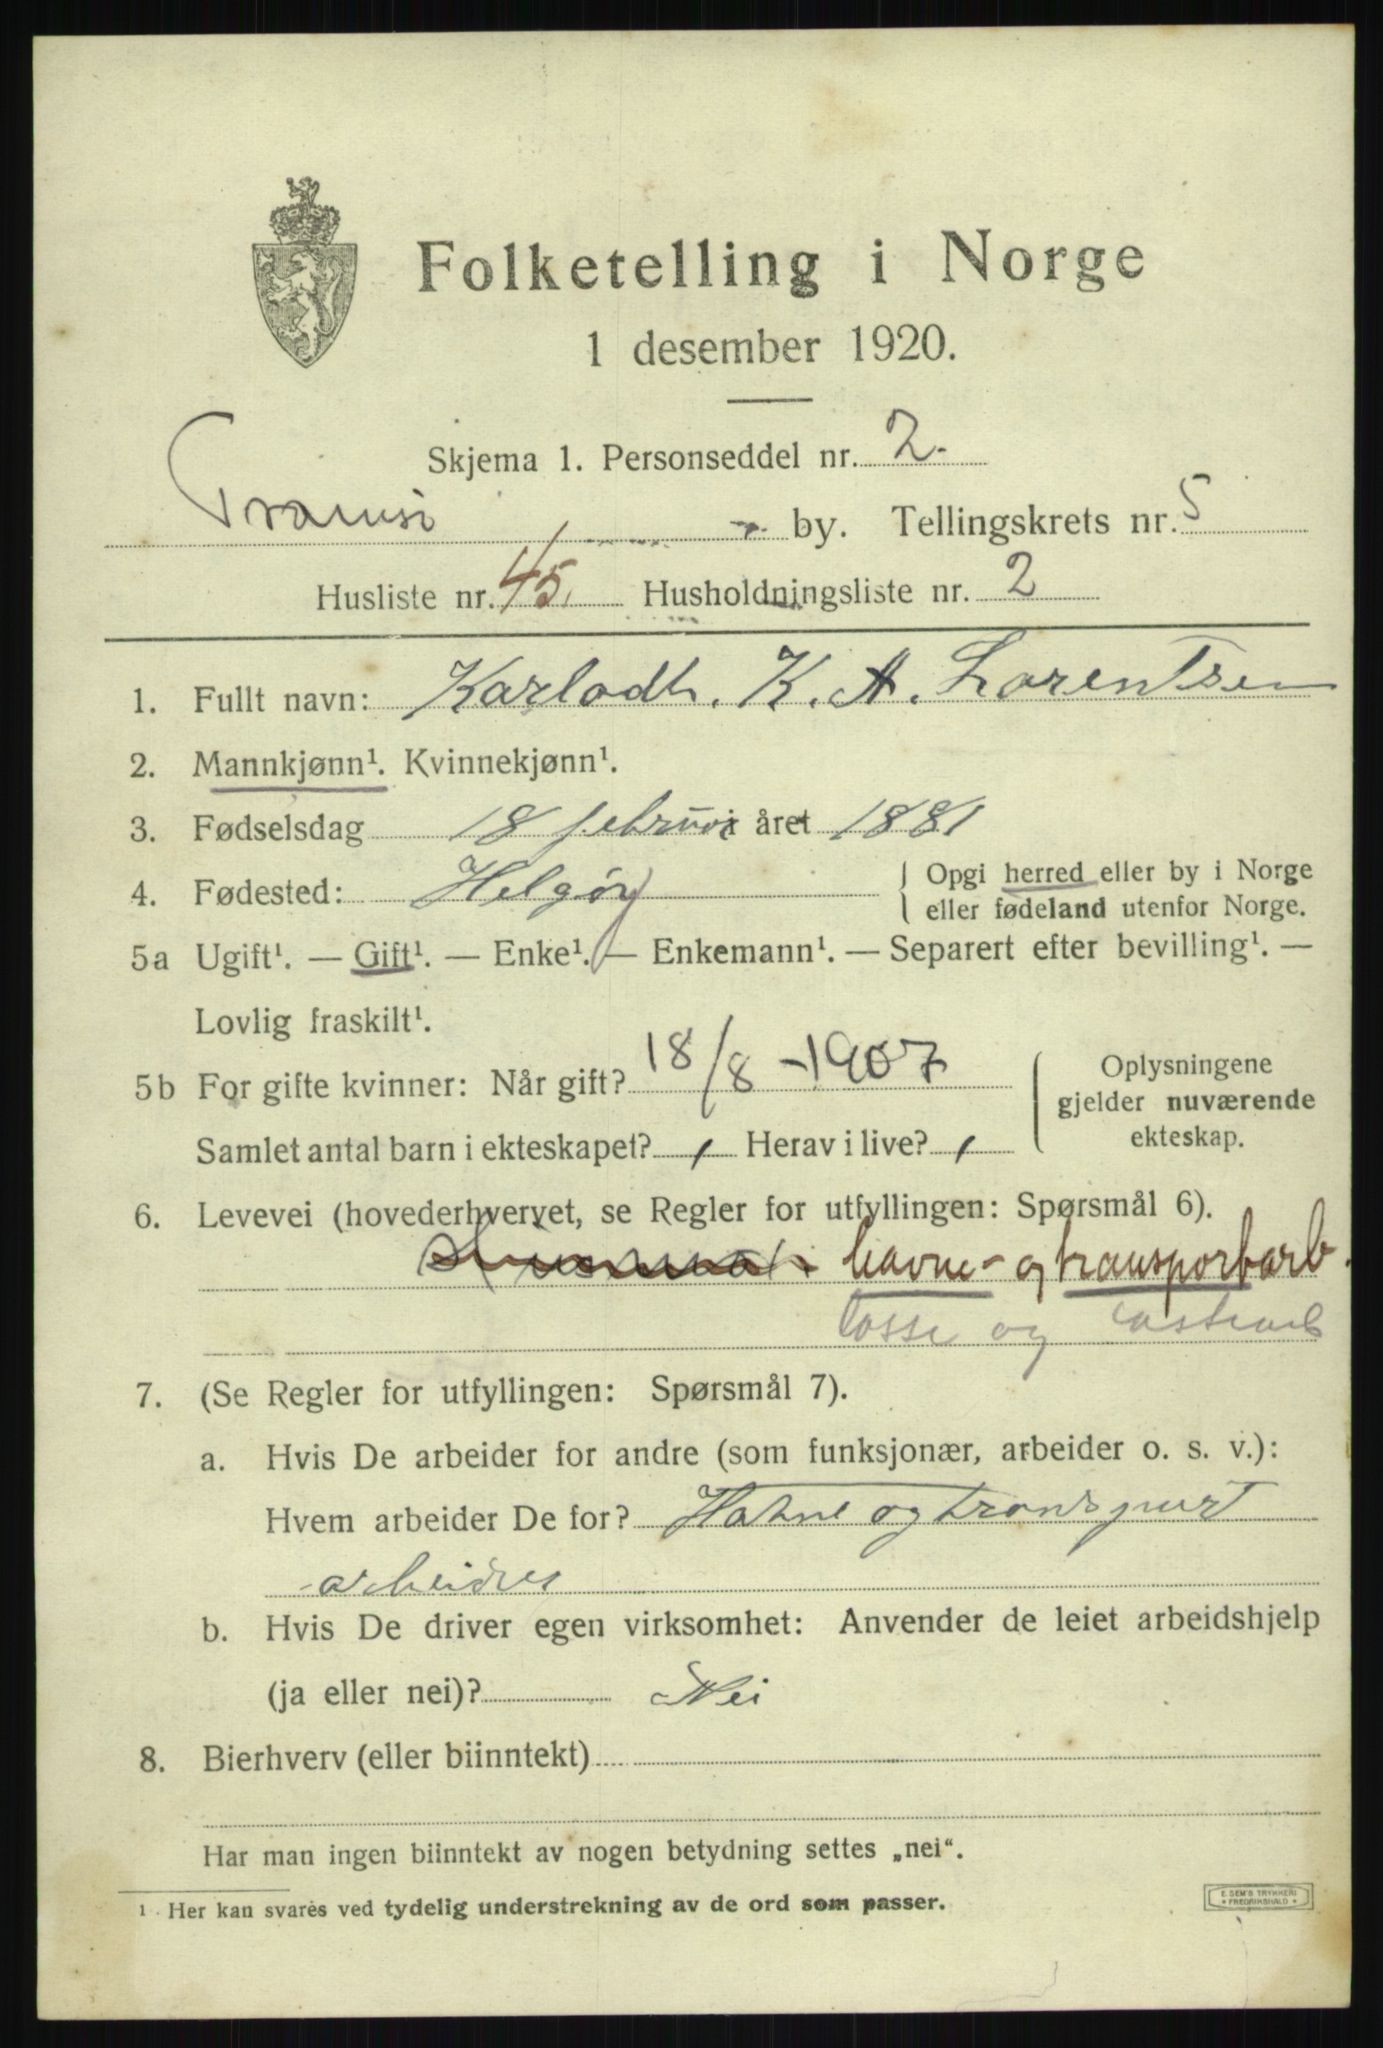 Folketelling i Norge
1 desember 1920.
Skjema 1. Personseddel nr. 2.
Tromsø by. Tellingskrets nr. 5
Husliste nr. 45. Husholdningsliste nr. 2
1. Fullt navn: Karlodh. K. A. Lorentsen
2. Mannkjønn¹. Kvinnekjønn¹.
3. Fødselsdag 18 februar året 1881
4. Fødested: Helgøy { Opgi herred eller by i Norge
eller fødeland utenfor Norge.
5a Ugift¹. — Gift¹. — Enke¹. — Enkemann¹. — Separert efter bevilling¹. —
Lovlig fraskilt¹.
5b For gifte kvinner: Når gift? 18/8 - 1907
Samlet antal barn i ekteskapet? 1 Herav i live? 1
{ Oplysningene
gjelder nuværende
ekteskap.
6. Levevei (hovederhvervet, se Regler for utfyllingen: Spørsmål 6).
havne- og transportarb.
losse og lastearb
7. (Se Regler for utfyllingen: Spørsmål 7).
a. Hvis De arbeider for andre (som funksjonær, arbeider o. s. v.):
Hvem arbeider De for? Havne og transport
arbeider
b. Hvis De driver egen virksomhet: Anvender de leiet arbeidshjelp
(ja eller nei)? Nei
8. Bierhverv (eller biinntekt)
Har man ingen biinntekt av nogen betydning settes „nei“.
¹ Her kan svares ved tydelig understrekning av de ord som passer.
E. SEM'S TRYKKERI
• FREDRIKSHALD •